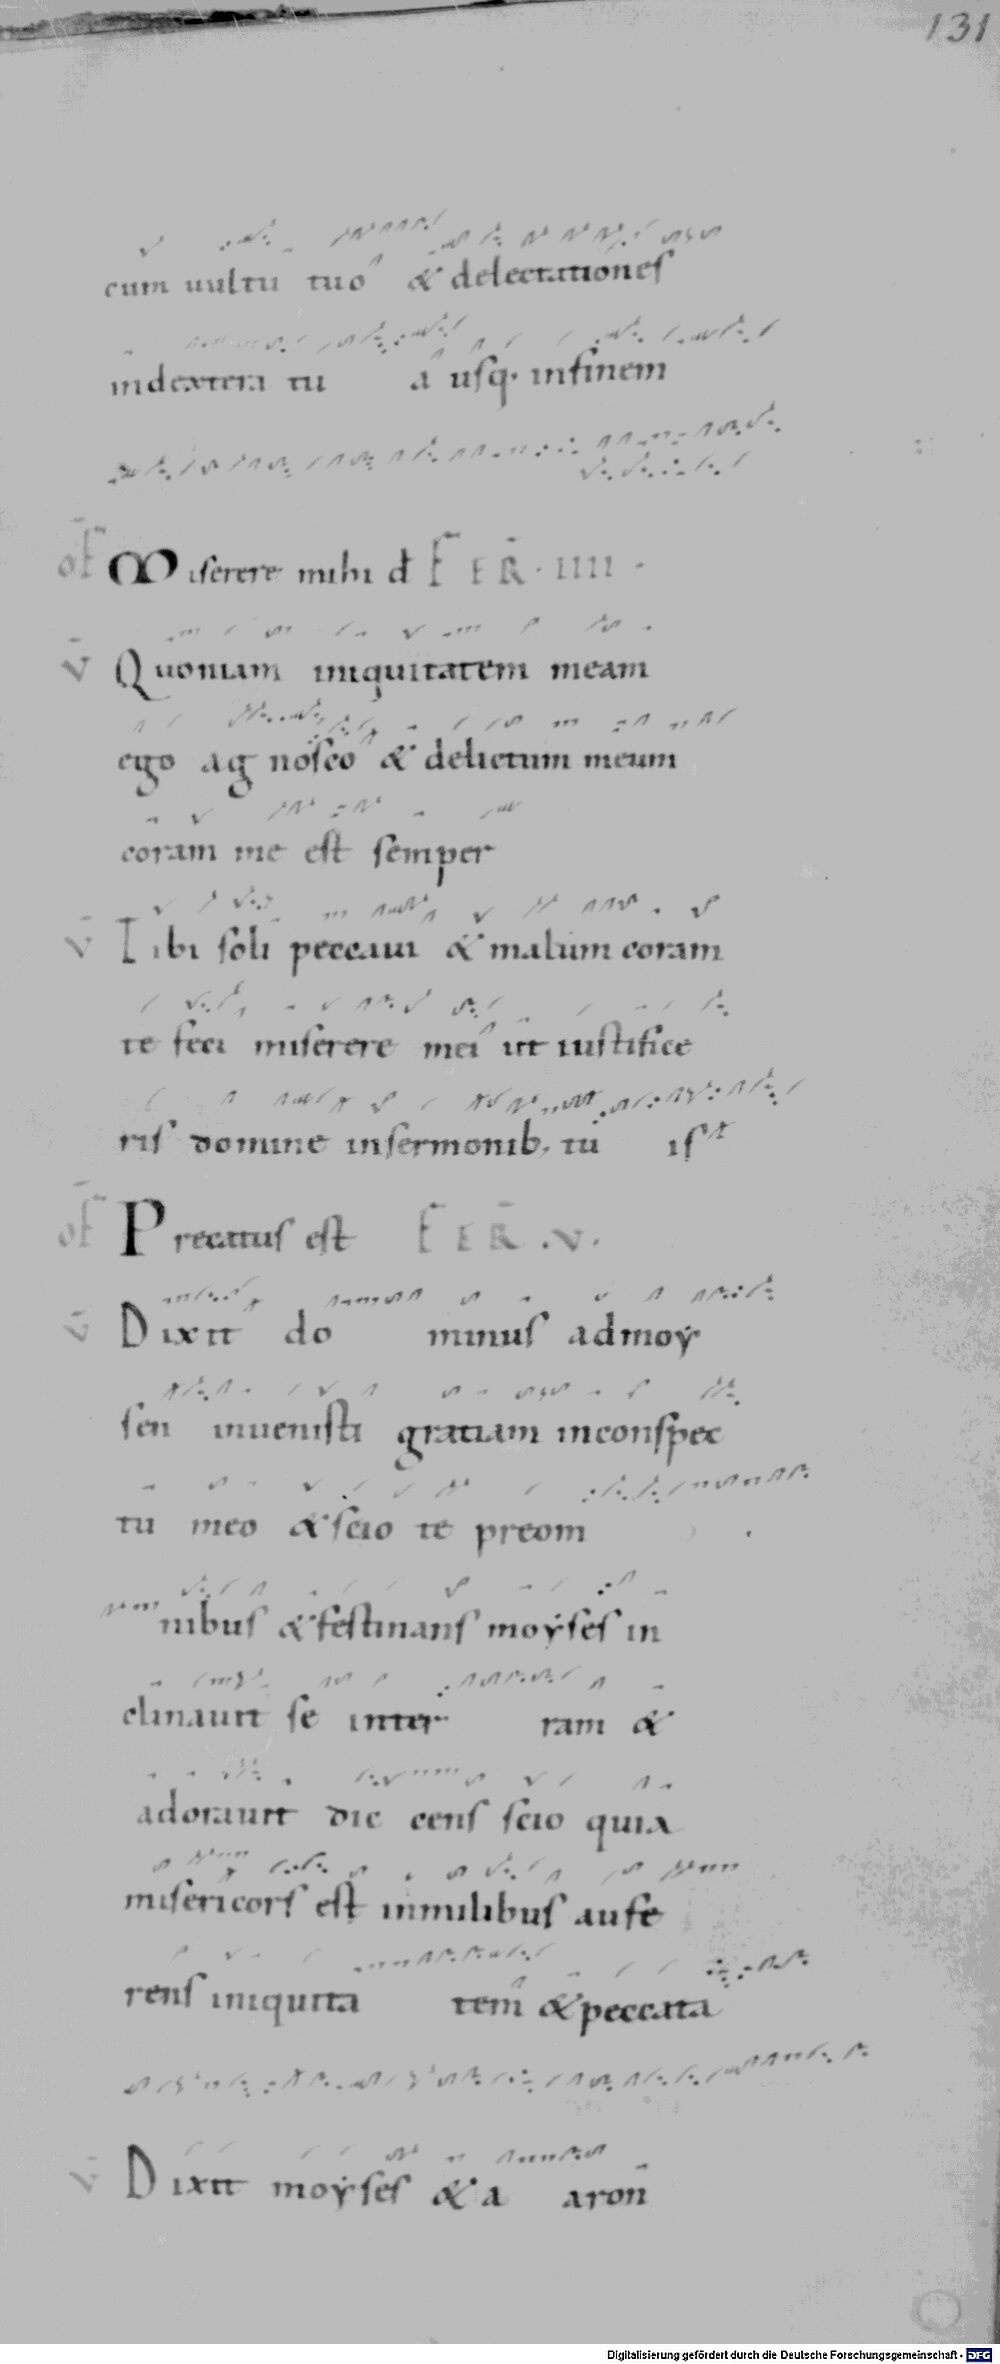 131
cum uultu tuo & delectationes
in dextera tu a usq. in finem
of Miserere mihi d FER. IIII.
V Quoniam iniquitatem meam
ego ag nosco & delictum meum
coram me est semper
V Tibi soli peccaui & malum coram
te feci miserere mei ut iustifice
ris domine in sermonib. tu is
of Precatus est FER. V.
V Dixit do minus ad moy
sen inuenisti gratiam in conspec
tu meo & scio te pre om
nibus & festinans moyses in
clinauit se inter ram &
adorauit dic cens scio quia
misericors est in milibus aufe
rens iniquita tem & peccata
V Dixit moyses & a aron
Digitalisierung gefördert durch die Deutsche Forschungsgemeinschaft - DFG